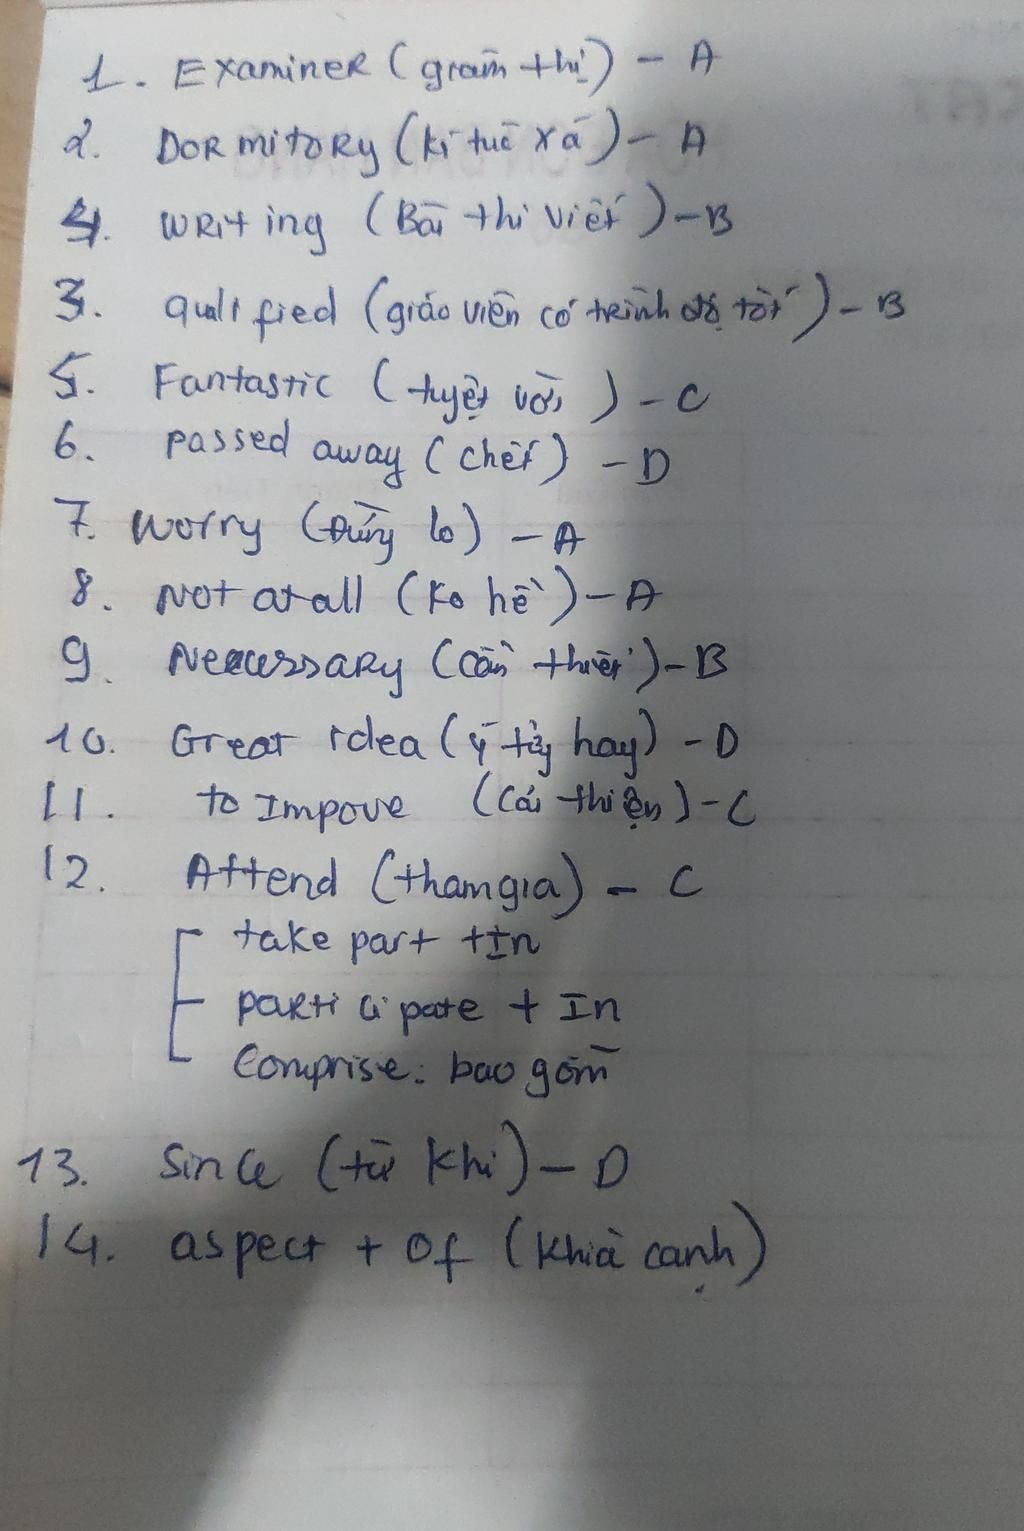 1. Examiner (giám thị) - A
2. Dormitory (kí túc xá) - A
4. writing (Bài thi viết) - B
3. qualified (giáo viên có trình độ tốt) - B
5. Fantastic (tuyệt vời) - C
6. passed away (chết) - D
7. worry (Đừng lo) - A
8. Not at all (Ko hề) - A
9. Necessary (cần thiết) - B
10. Great idea (ý tưởng hay) - D
11. to Impove (Cải thiện) - C
12. Attend (tham gia) - C
take part + In
participate + In
Comprise: bao gồm
13. Since (từ khi) - D
14. aspect + of (khía cạnh)